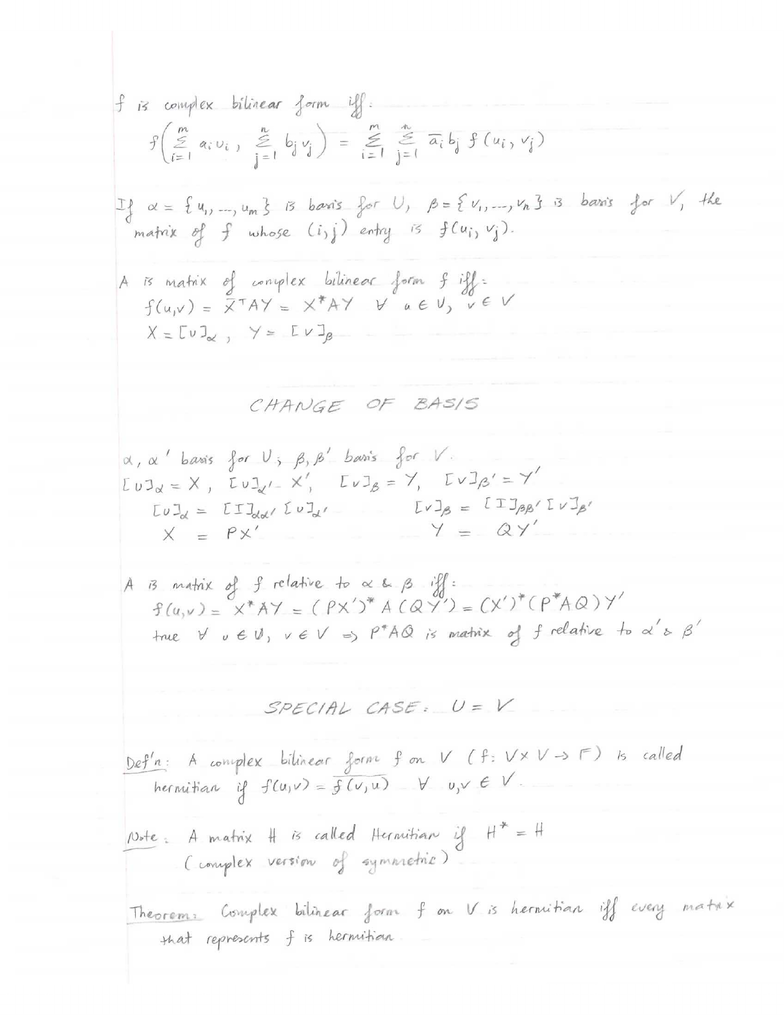 f is complex bilinear form iff:
f(∑_{i=1}^{m} aᵢuᵢ, ∑_{j=1}^{n} bⱼvⱼ) = ∑_{i=1}^{m} ∑_{j=1}^{n} āᵢbⱼ f(uᵢ, vⱼ)
If α = {u₁, ---, uₘ} is basis for U, β = {v₁, ---, vₙ} is basis for V, the
matrix of f whose (i,j) entry is f(uᵢ, vⱼ).
A is matrix of complex bilinear form f iff:
f(u,v) = X̄ᵀAY = X*AY ∀ u ∈ U, v ∈ V
X = [u]_α, Y = [v]_β
CHANGE OF BASIS
α, α' basis for U; β, β' basis for V.
[u]_α = X, [u]_α' = X', [v]_β = Y, [v]_β' = Y'
[u]_α = [I]_αα' [u]_α' [v]_β = [I]_ββ' [v]_β'
X = PX' Y = QY'
A is matrix of f relative to α & β iff:
f(u,v) = X*AY = (PX')* A (QY') = (X')* (P*AQ) Y'
true ∀ u ∈ U, v ∈ V ⇒ P*AQ is matrix of f relative to α' & β'
SPECIAL CASE: U = V
Def'n: A complex bilinear form f on V (f: V×V → F) is called
hermitian if f(u,v) = \overline{f(v,u)} ∀ u,v ∈ V.
Note: A matrix H is called Hermitian if H* = H
(complex version of symmetric)
Theorem: Complex bilinear form f on V is hermitian iff every matrix
that represents f is hermitian.